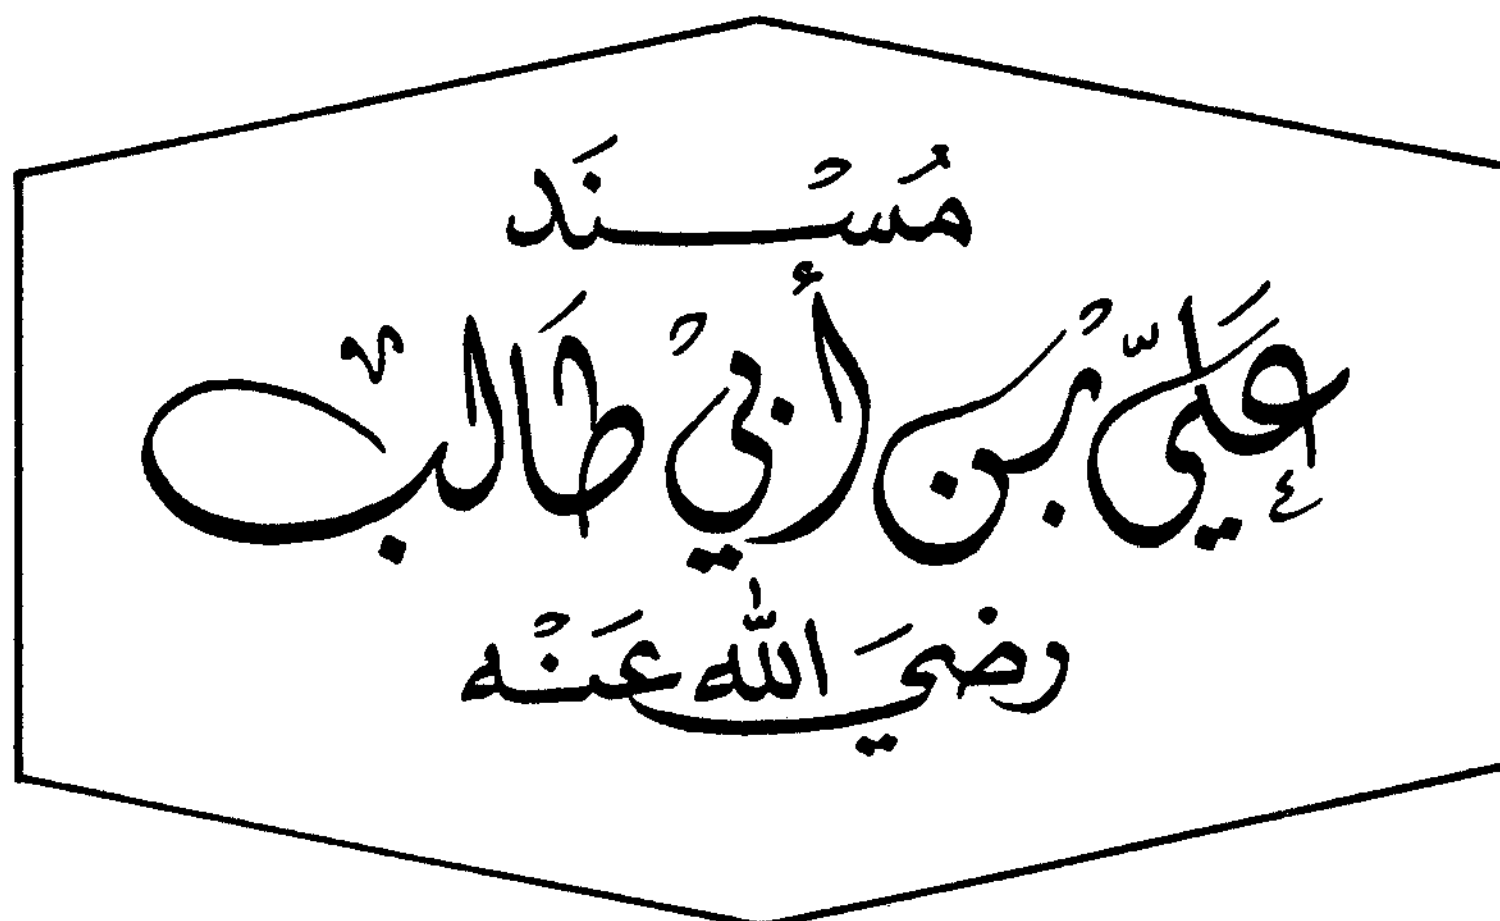 مُسْنَد
عَلَيّ بْن أَبيْ طَالب
رضيَ اللّٰه عَنْه